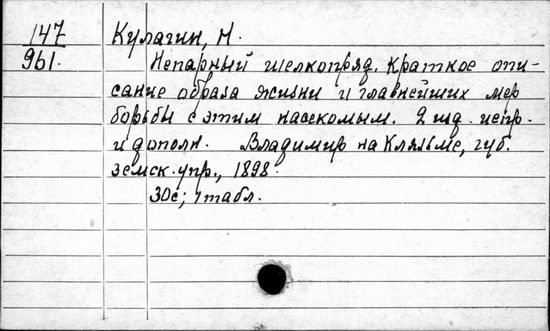 147 Кулагин, Н.
961. Непарный шелкопряд. Краткое опи-
сание образа жизни и главнейших мер
борьбы с этим насекомым. 2 изд. испр.
и дополн. Владимир на Клязьме, губ.
земск. упр., 1898.
30с; 1 табл.